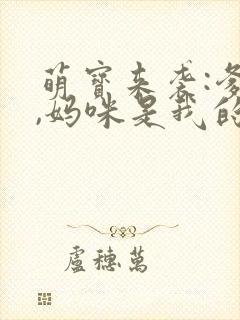 萌寶来袭:爹
,妈咪是我的
盧穗萬